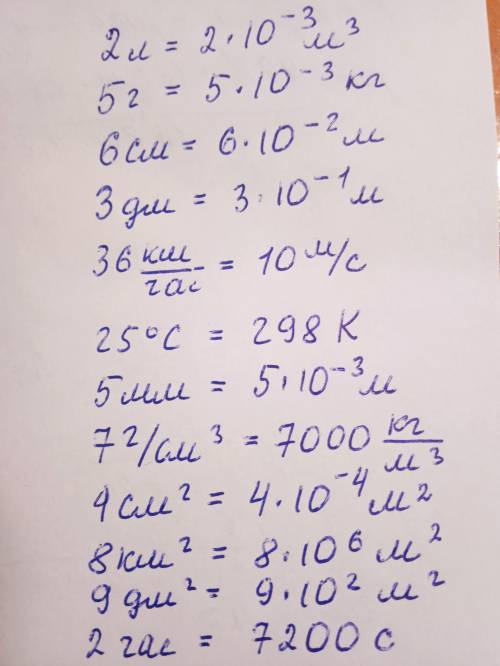 2л = 2·10⁻³ м³
5г = 5·10⁻³ кг
6см = 6·10⁻² м
3дм = 3·10⁻¹ м
36 км/час = 10 м/с
25°C = 298 K
5мм = 5·10⁻³ м
7г/см³ = 7000 кг/м³
4см² = 4·10⁻⁴ м²
8км² = 8·10⁶ м²
9дм² = 9·10² м²
2час = 7200 с